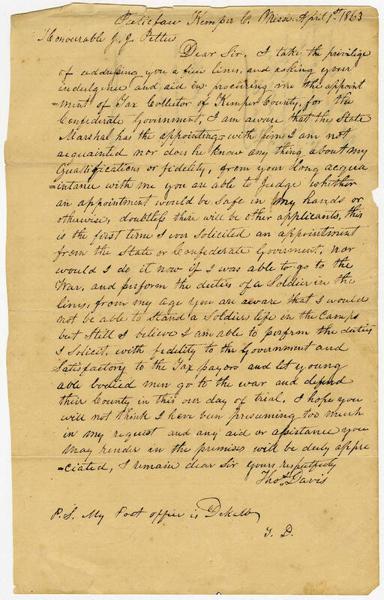 Kemper Co Miss. April 1st 1863
Honourable J. J. Pettus
Dear Sir, I take the privilige
of addressing you a few lines, and asking your
indulgence and aid in procuring me the appoint
=ment of Tax Collector of Kemper County, for the
Confederate Government, I am aware that the State
Marshal has the appointing with him I am not
acquainted nor does he know any thing about my
Qualifications or fidelity, from your long acqua
intance with me you are able to Judge whether
an appointment would be safe in my hands or
otherwise, doubtless there will be other applicants, this
is the first time I ever Solicited an appointment
from the State or Confederate Goverment, nor
would I do it now if I was able to go to the
War, and perform the duties of a Soldier in the
lines, from my age you are aware that I would
not be able to Stand a Soldiers life in the Camps
but Still I believe I am able to perform the duties
I Solicit, with fidelity to the Government and
Satisfactory to the Tax payors and let young
able bodied men go to the war and defend
their County in this our day of trial, I hope you
will not think I have been presuming too much
in my request and any aid or assistance you
may render in the premises will be duly appre
=ciated, I remain dear Sir yours respectfully
Thos Davis
P.S. My Post office is DeKalb
T. D.